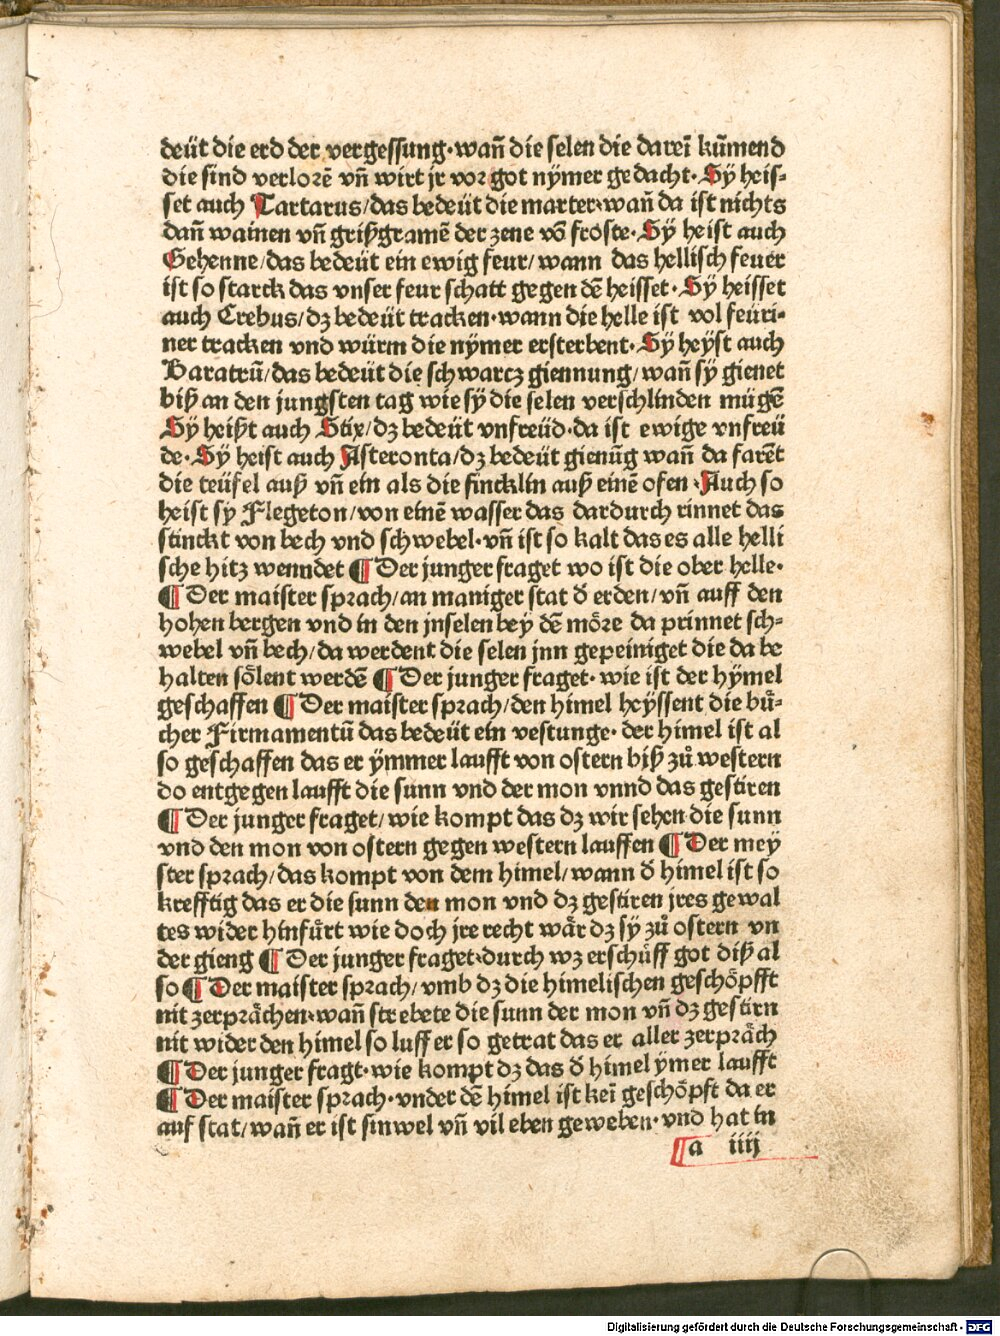 deüt die erd der vergessung·wañ die selen die dareĩ kũmend
die sind verlorẽ vñ wirt jr vor got nÿmer gedacht·Sÿ heis⸗
set auch Tartarus/das bedeüt die marter·wañ da ist nichts
dañ wainen vñ grißgramẽ der zene võ froste·Sÿ heist auch
Gehenne/das bedeüt ein ewig feur/wann das hellisch feuer
ist so starck das vnser feur schatt gegen dẽ heisset·Sÿ heisset
auch Erebus/dz bedeüt tracken·wann die helle ist vol feuri⸗
ner tracken vnd würm die nÿmer ersterbent·Sÿ heÿst auch
Baratrũ/das bedeüt die schwarcz giennung/wañ sÿ gienet
biß an den jungsten tag wie sÿ die selen verschlinden mügẽ
Sÿ heißt auch Stix/dz bedeüt vnfreüd·da ist ewige vnfreü
de·Sÿ heist auch Asteronta/dz bedeüt gienũg wañ da farẽt
die teüfel auß vñ ein als die fincklin auß einẽ ofen·Auch so
heist sÿ Flegeton/von einẽ wasser das dardurch rinnet das
stinckt von bech vnd schwebel·vñ ist so kalt das es alle helli
sche hitz wenndet ¶ Der junger fraget wo ist die ober helle·
¶ Der maister sprach/an maniger stat d̕ erden/vñ auff den
hohen bergen vnd in den jnselen bey dẽ möre da prinnet sch⸗
webel vñ bech/da werdent die selen jnn gepeiniget die da be
halten sölent werdẽ ¶ Der junger fraget·wie ist der hÿmel
geschaffen ¶ Der maister sprach/den himel heÿssent die bů⸗
cher Firmamentũ das bedeüt ein vestunge·der himel ist al
so geschaffen das er ÿmmer laufft von ostern biß zů western
do entgegen laufft die sunn vnd der mon vnnd das gestiren
¶ Der junger fraget/wie kompt das dz wir sehen die sunn
vnd den mon von ostern gegen western lauffen ¶ Der mey
ster sprach/das kompt von dem himel/wann d̕ himel ist so
krefftig das er die sunn den mon vnd dz gestiren jres gewal
tes wider hinfůrt wie doch jre recht wår dz sÿ zů ostern vn
der gieng ¶ Der junger fraget·durch wz erschůff got diß al
so ¶ Der maister sprach/vmb dz die himelischen geschöpfft
nit zerprächen·wañ strebete die sunn der mon vñ dz gestirn
nit wider den himel so luff er so getrat das er aller zerpräch
¶ Der junger fragt·wie kompt dz das d̕ himel ÿmer laufft
¶ Der maister sprach·vnder dẽ himel ist keĩ geschöpft da er
auf stat/wañ er ist sinwel vñ vil eben geweben·vnd hat in
a iiij
Digitalisierung gefördert durch die Deutsche Forschungsgemeinschaft - DFG